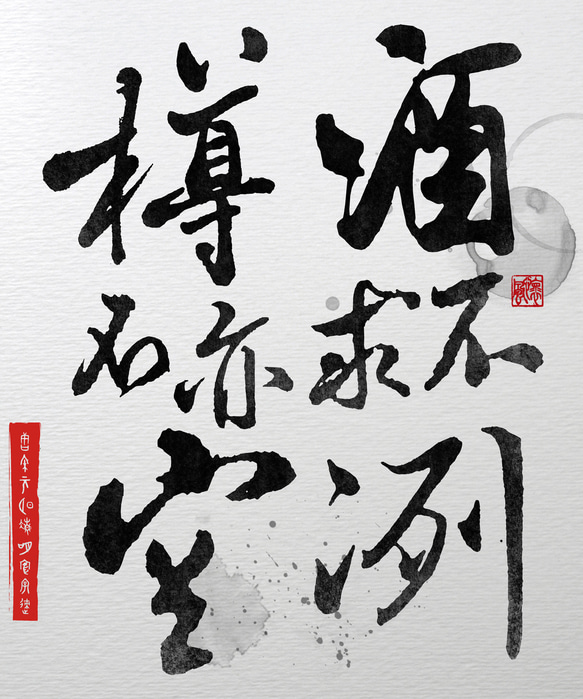 酒不求冽
樽亦不空